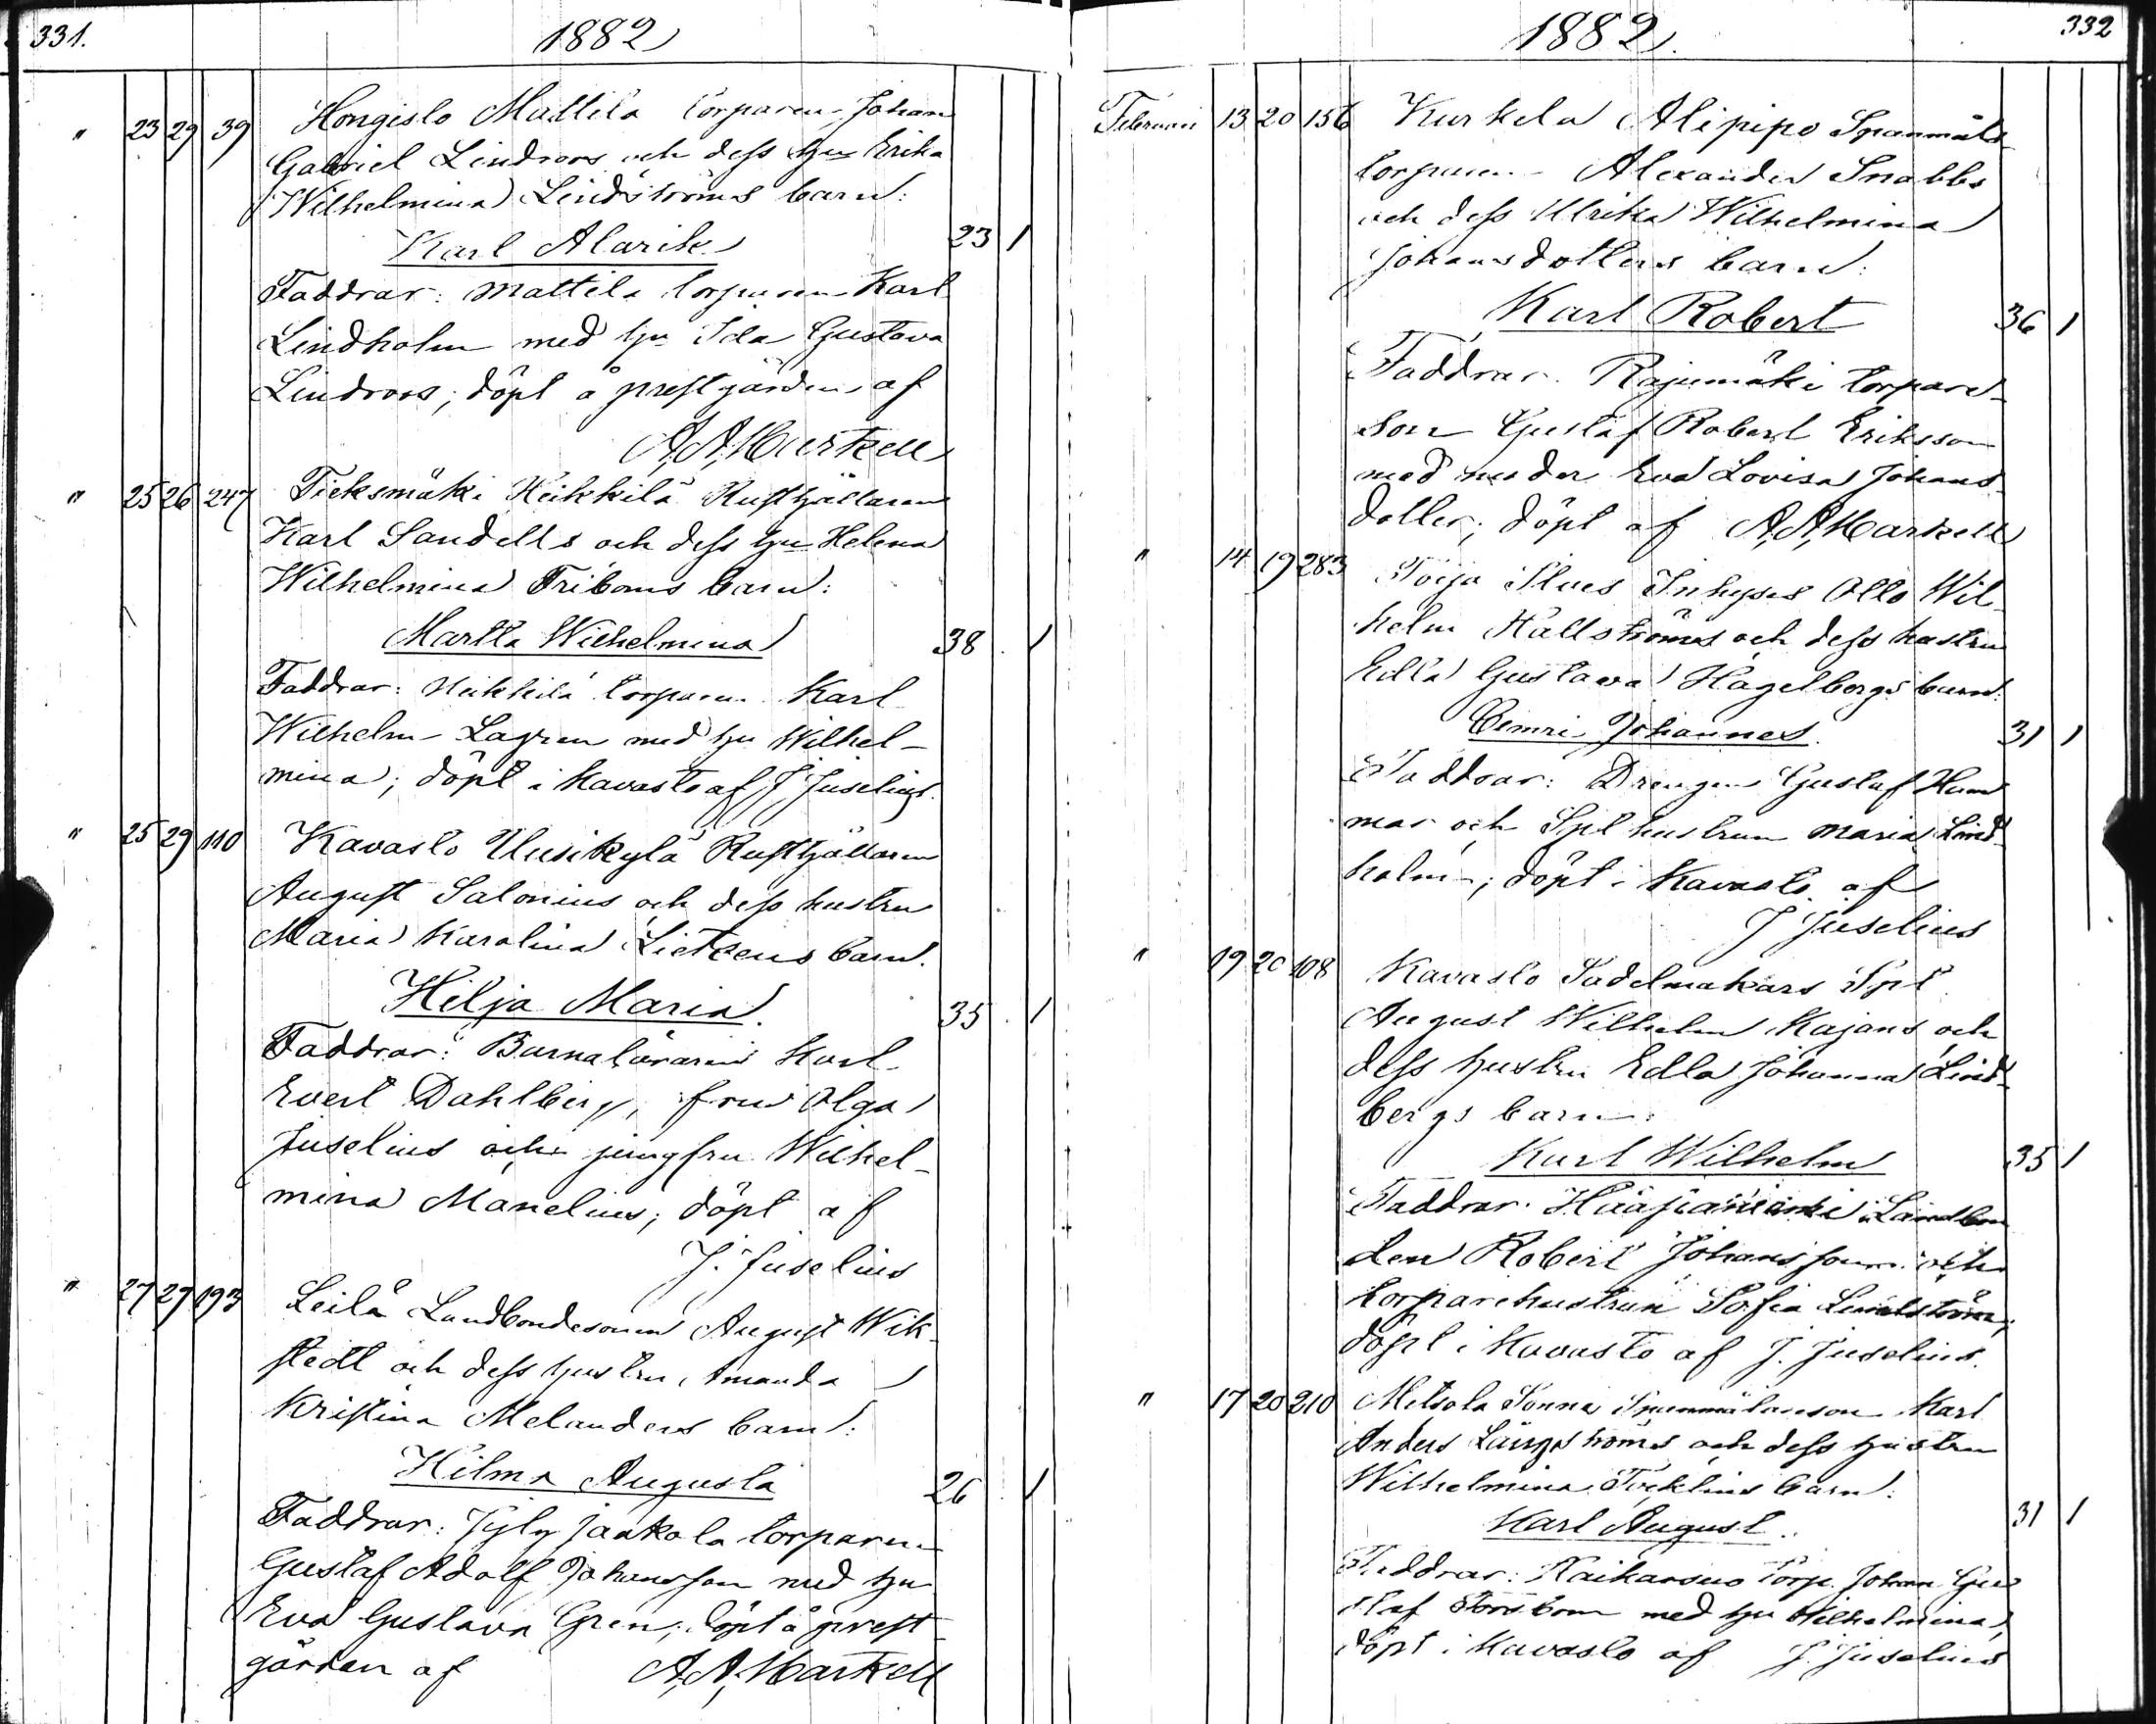 331.
1882
" 23 29 39 Hongislo Mattila torparen Johan
Gabriel Lindroos och dess hu Erika
Wilhelmina Lindströms barn:
Karl Alarik 23 1
Faddrar: Mattila torparen Karl
Lindholm med hu Ida Gustava
Lindroos; döpt å prestgården af
A, A, Markell
" 25 26 247 Heikkilä Rusthållaren
Karl Sandells och dess hu Helena
Wilhelmina Friboms barn:
Martta Wilhelmina 38 1
Faddrar: Heikkilä torparen Karl
Wilhelm Lagren med hu Wilhel-
mina; döpt i Kavasto af J Juselius.
" 25 29 110 Kavasto Uusikylä Rusthållaren
August Salonius och dess hustru
Maria Karolina Lietzens barn.
Hilja Maria 35 1
Faddrar: Barnaläraren Karl
Evert Dahlberg, fru Olga
Juselius och jungfru Wilhel-
mina Manelius; döpt af
J. Juselius
" 27 29 193 Leilä Landbondesonen August Wik-
stedt och dess hustru Amanda
Kristina Melanders barn:
Hilma Augusta 26 1
Faddrar: Jyly Jaakola torparen
Gustaf Adolf Johansson med hu
Eva Gustava Gren; döpt å prest-
gården af A, A, Markell
1882.
332
Februari 13 20 156 Kurkela Alipipo Spanmåls-
torparen Alexander Snabbs
och dess Ulrika Wilhelmina
Johansdotters barn:
Karl Robert 36 1
Faddrar: Rajumäki torpare-
son Gustaf Robert Eriksson
med moder Eva Lovisa Johans-
dotter; döpt af A, A, Markell
" 14 19 283 Töija Inhyses Otto Wil-
helm Hällströms och dess hustru
Edla Gustava Hagelbergs barn:
Johannes 31 1
Faddrar: Drengen Gustaf Ham
mar och Spl hustrun Maria Lind-
holm; döpt i Kavasto af
J Juselius
" 19 20 108 Kavasto Sadelmakars Spl
August Wilhelm Kajans och
dess hustru Edla Johanna Lind-
bergs barn:
Karl Wilhelm 35 1
Faddrar: Landbon
den Robert Johansson och
torparehustrun Sofia Lindström;
döpt i Kavasto af J. Juselius.
" 17 20 210 Metsola Karl
Anders Långströms och dess hustru
Wilhelmina barn:
Karl August. 31 1
Faddrar: Raikansuo Torp. Johan Gu
staf med hu Wilhelmina,
döpt i Kavasto af J. Juselius